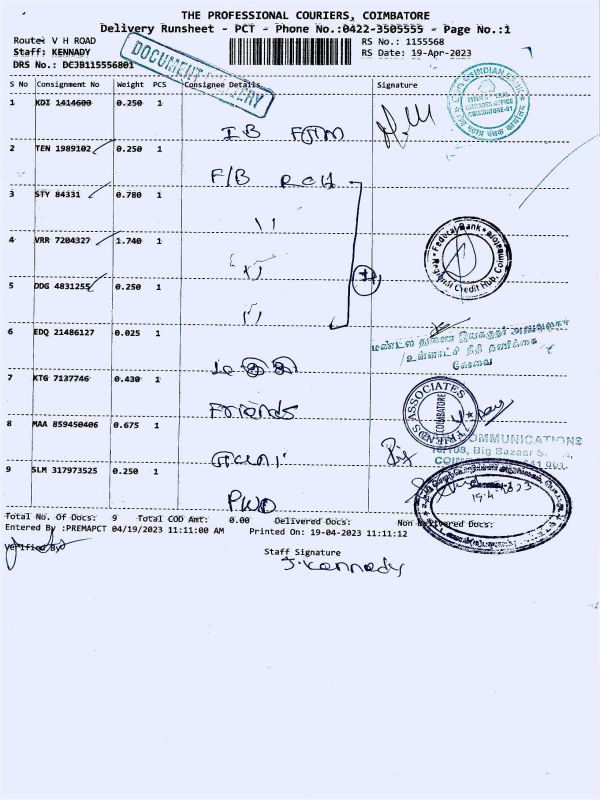 THE PROFESSIONAL COURIERS, COIMBATORE
Delivery Runsheet - PCT - Phone No.:0422-3505555 - Page No.:1
Route: V H ROAD
RS No.: 1155568
Staff: KENNADY
RS Date: 19-Apr-2023
DRS No.: DCJB115556801
DOCUMENT
S No Consignment No Weight PCS Consignee Details Signature
1 KDI 1414600 0.250 1
IB
INDIAN BANK
COIMBATORE-01
2 TEN 1989102 0.250 1
F/B RCH
3 STY 84331 0.780 1
11
4 VRR 7204327 1.740 1
11
Federal Bank
Credit Hub, Coim
5 DDG 4831255 0.250 1
11
6 EDQ 21486127 0.025 1
மண்டல துணை இயக்குநர் அலுவலகம்
உள்ளாட்சி நிதி தணிக்கை
கோவை
7 KTG 7137746 0.430 1
Friends
FRIENDS ASSOCIATES
COIMBATORE
8 MAA 859450406 0.675 1
COMMUNICATIONS
Big Bazaar S
641 001.
9 SLM 317973525 0.250 1
PWD
19.4.2023
Total No. Of Docs: 9 Total COD Amt: 0.00 Delivered Docs: Non Delivered Docs:
Entered By :PREMAPCT 04/19/2023 11:11:00 AM Printed On: 19-04-2023 11:11:12
Verified By
Staff Signature
J. Kennady